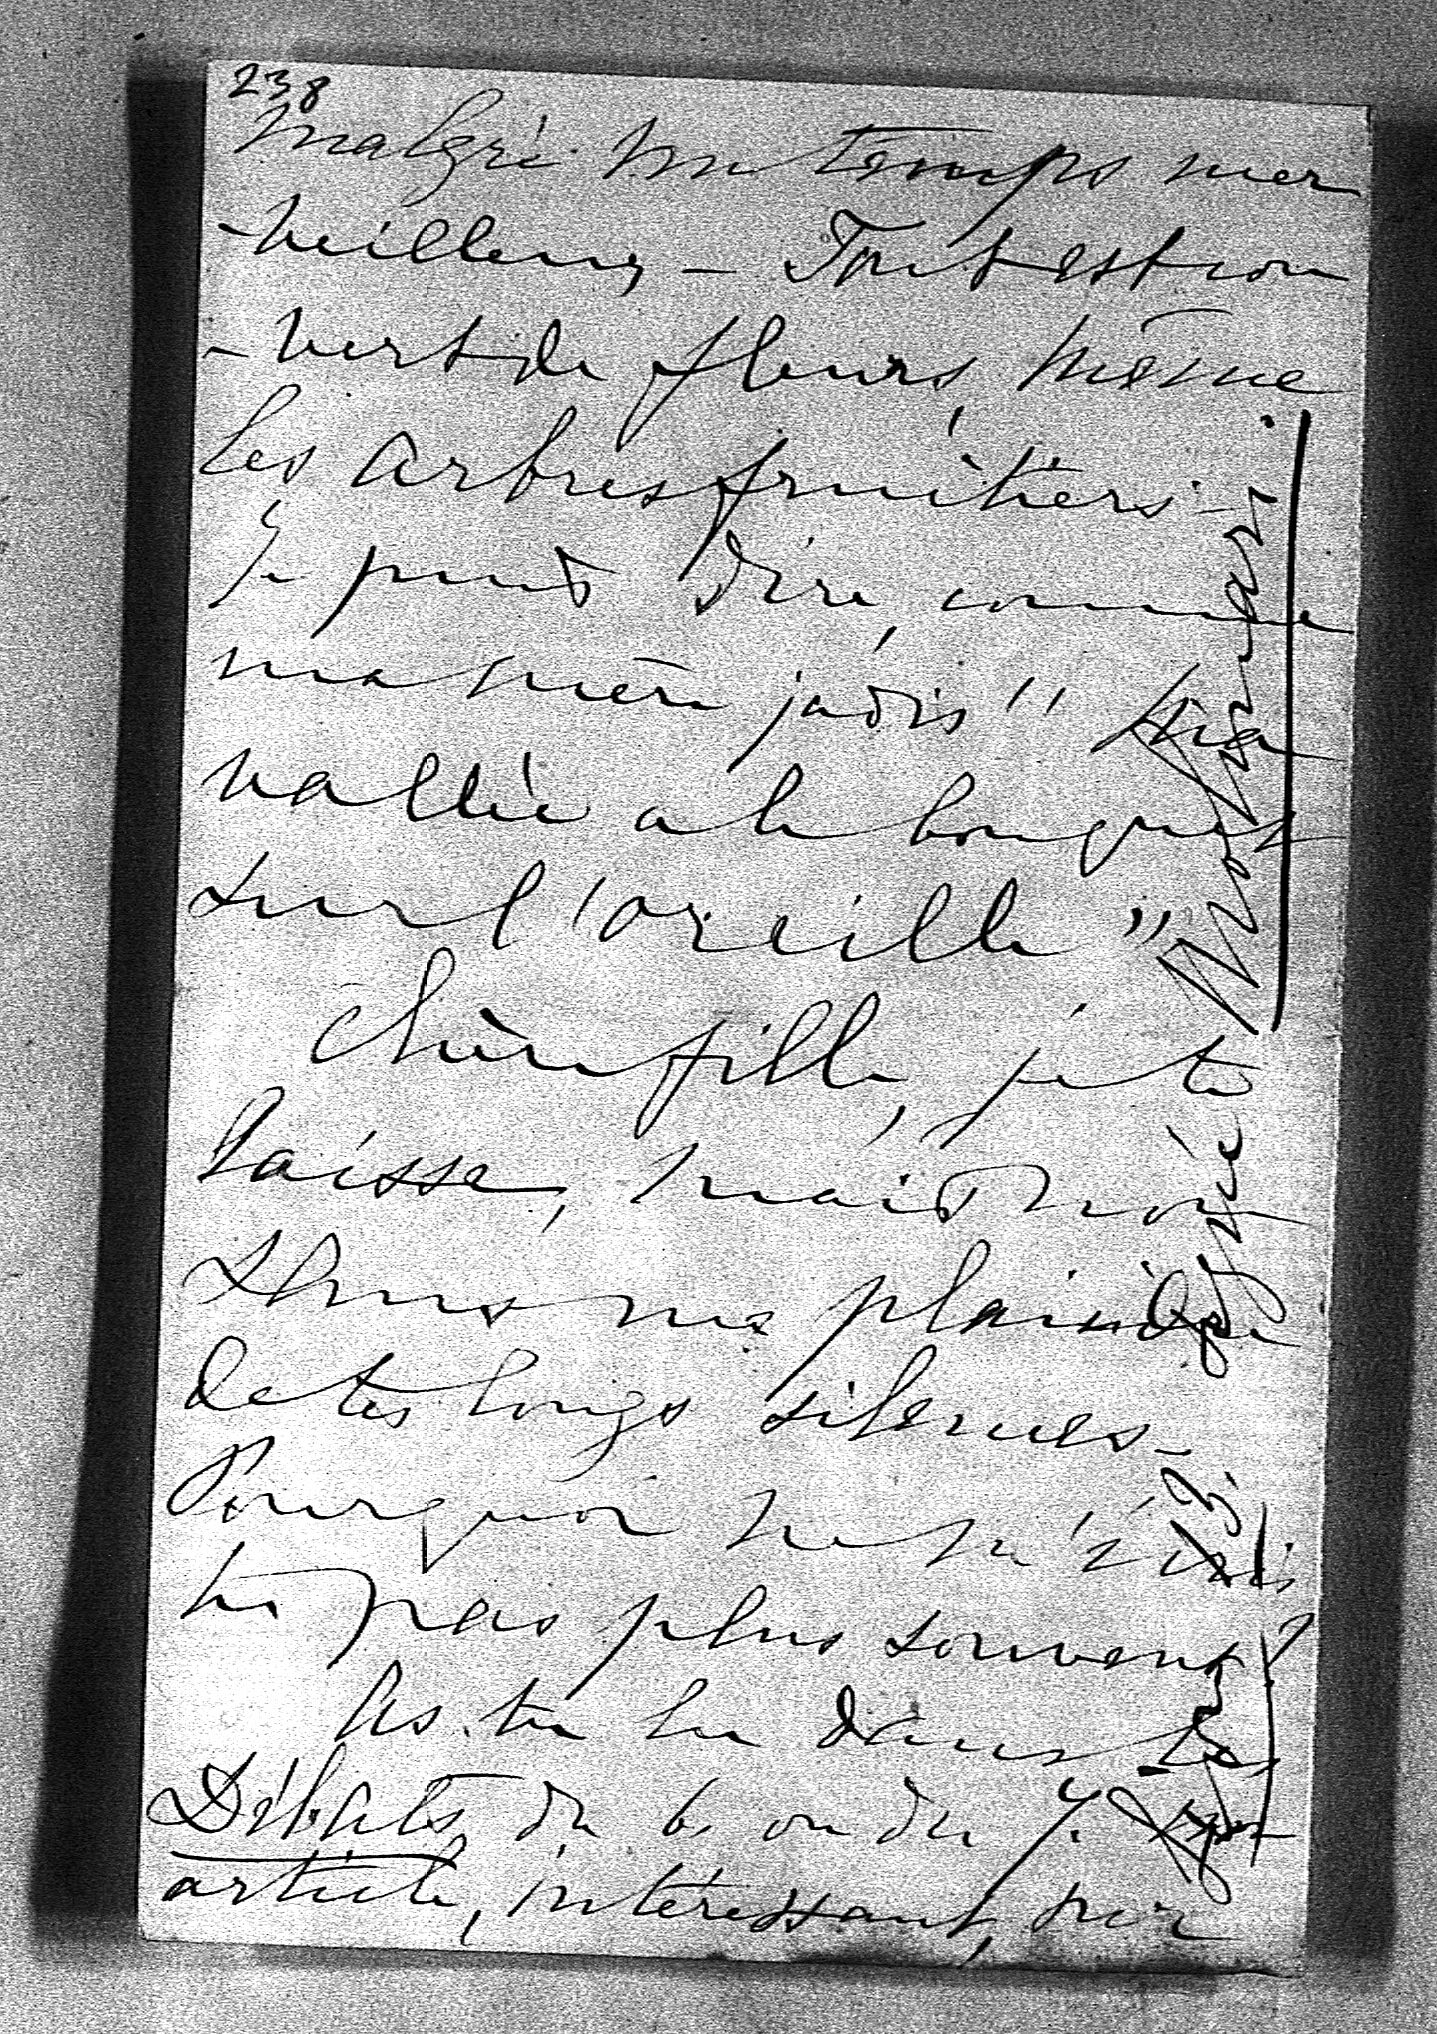 238
malgré un temps mer
-veilleux - Tout est cou
-vert de fleurs, même
les arbres fruitiers -
Je puis dire, comme
ma mère jadis " Ma
vallée a le bouquet
sur l'oreille "
Chère fille, je te
laisse, mais non
sans me plaindre
de tes longs silences -
Pourquoi ne m'écris
tu pas plus souvent?
As-tu lu dans les
Débats du 6 ou du 7. un
article, intéressant, sur
signé